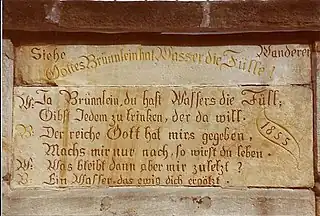 Siehe Wanderer
Gottes Brünnlein hat Wasser die Fülle!
W: Ja Brünnlein, du hast Wassers die Füll;
Gibst Jedem zu trinken, der da will.
B: Der reiche Gott hat mirs gegeben,
Machs mir nur nach, so wirst du leben.
1855
W: Was bleibt dann aber mir zuletzt?
B: Ein Wasser, das ewig dich ergötzt.